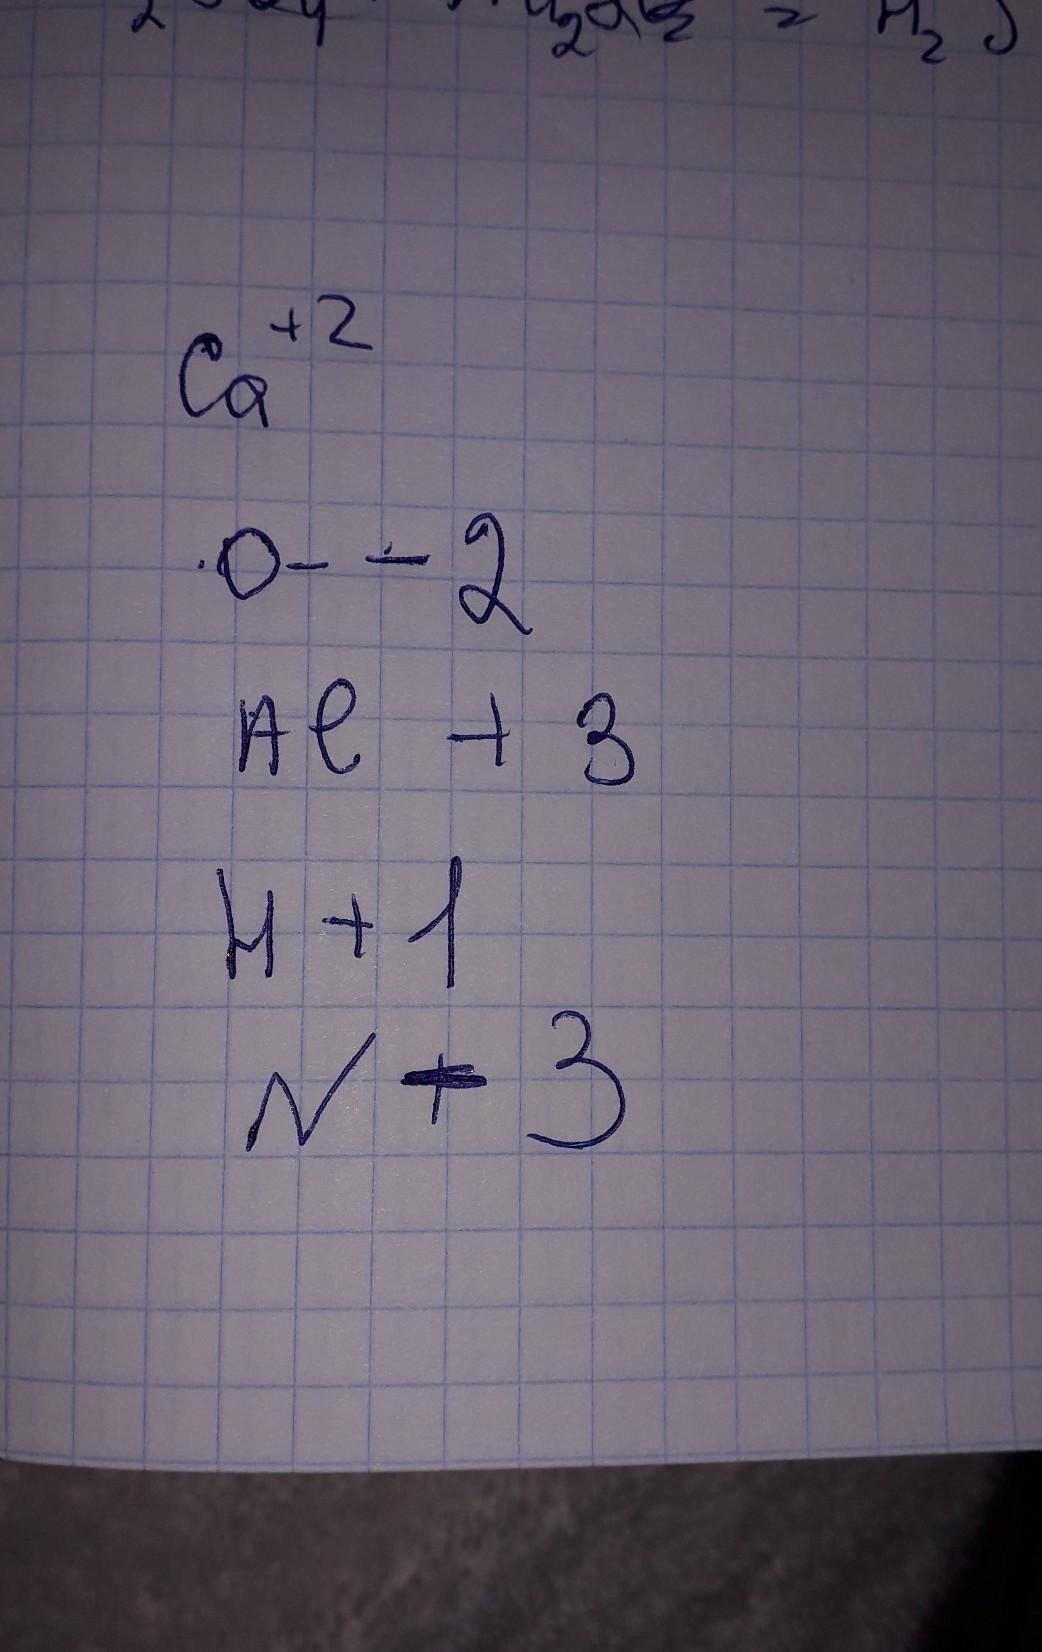 = H₂
Ca⁺²
O - - 2
Al + 3
H + 1
N + 3